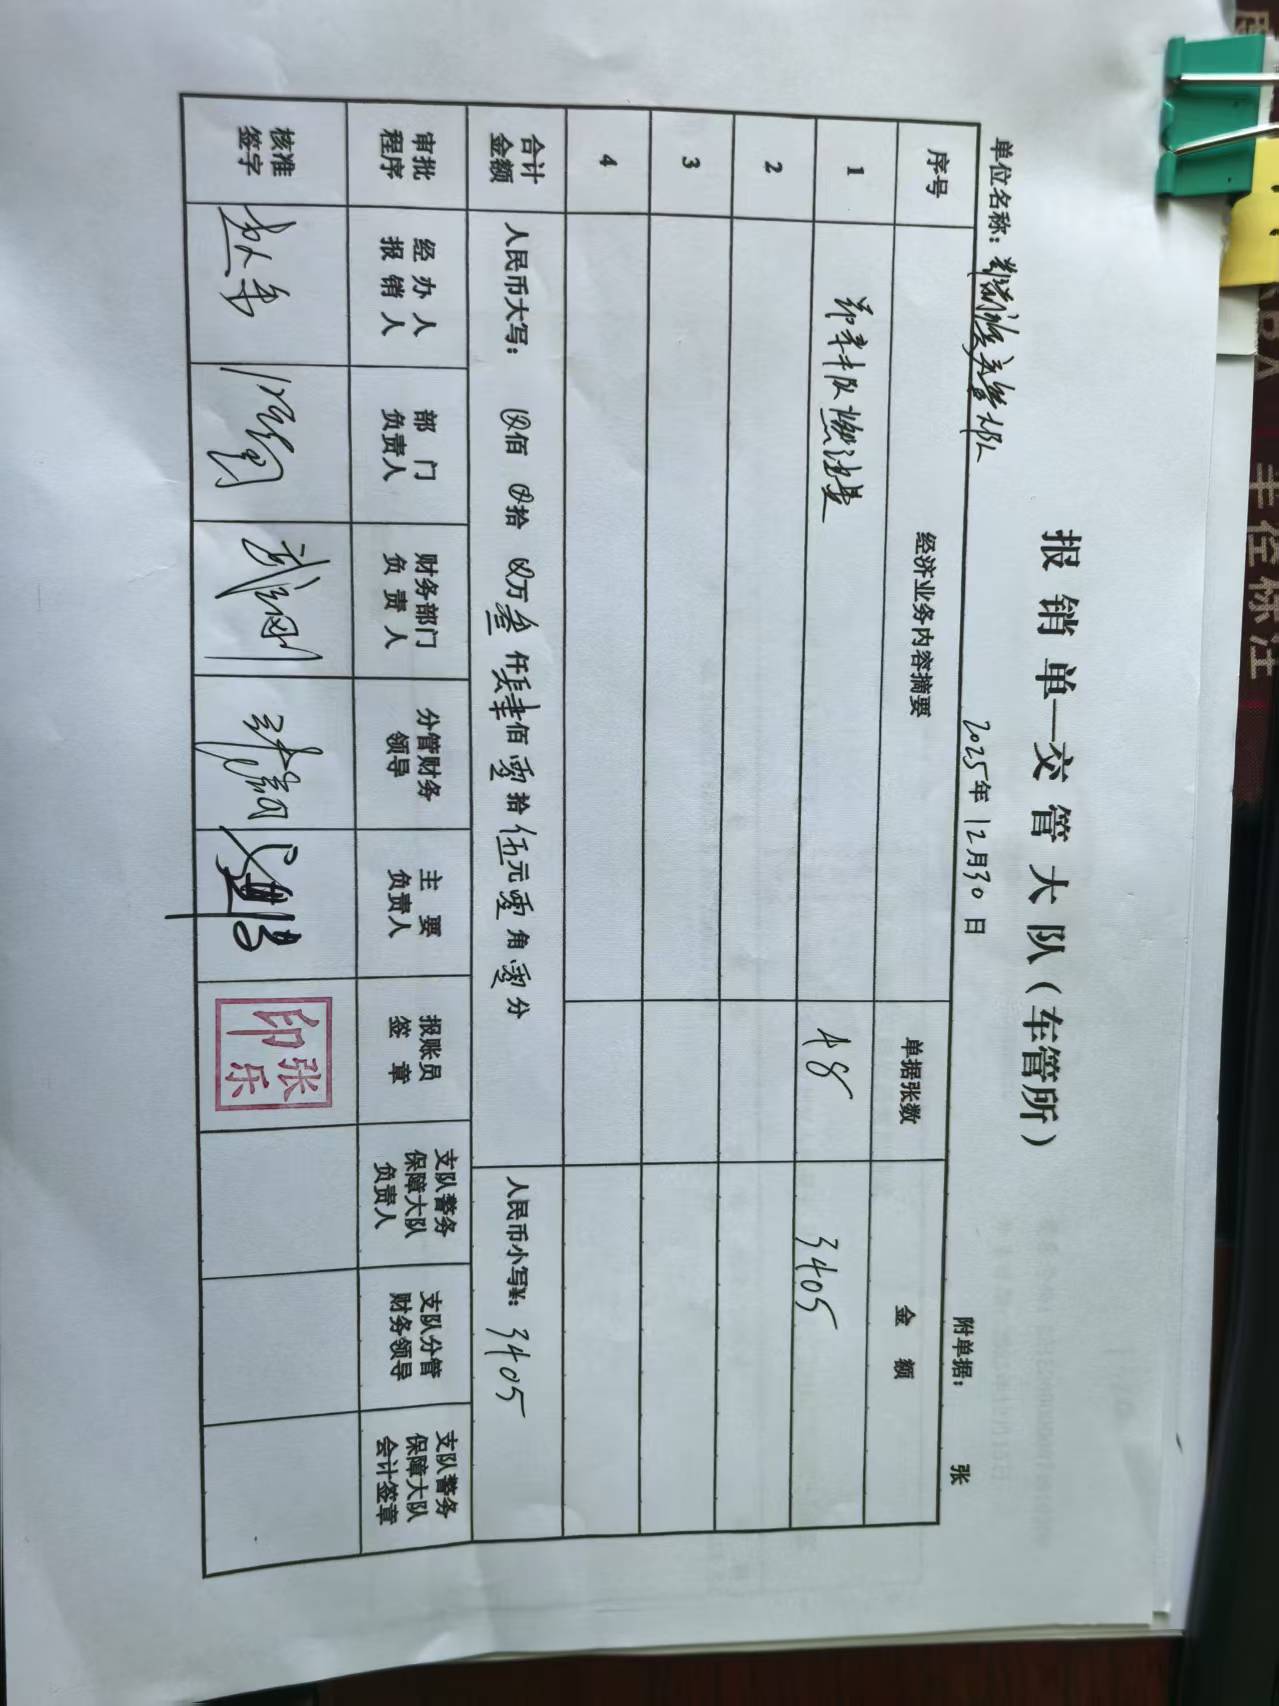 报销单—交管大队（车管所）
单位名称： 2025年12月30日 附单据： 张
序号 经济业务内容摘要 单据张数 金额
1 燃油费 48 3405
2
3
4
合计金额 人民币大写： ⊗佰 ⊗拾 ⊗万 叁仟肆佰零拾伍元零角零分 人民币小写¥：3405
审批程序 经办人报销人 部门负责人 财务部门负责人 分管财务领导 主要负责人 报账员签章 支队警务保障大队负责人 支队分管财务领导 支队警务保障大队会计签章
核准签字 张乐印
半径标注